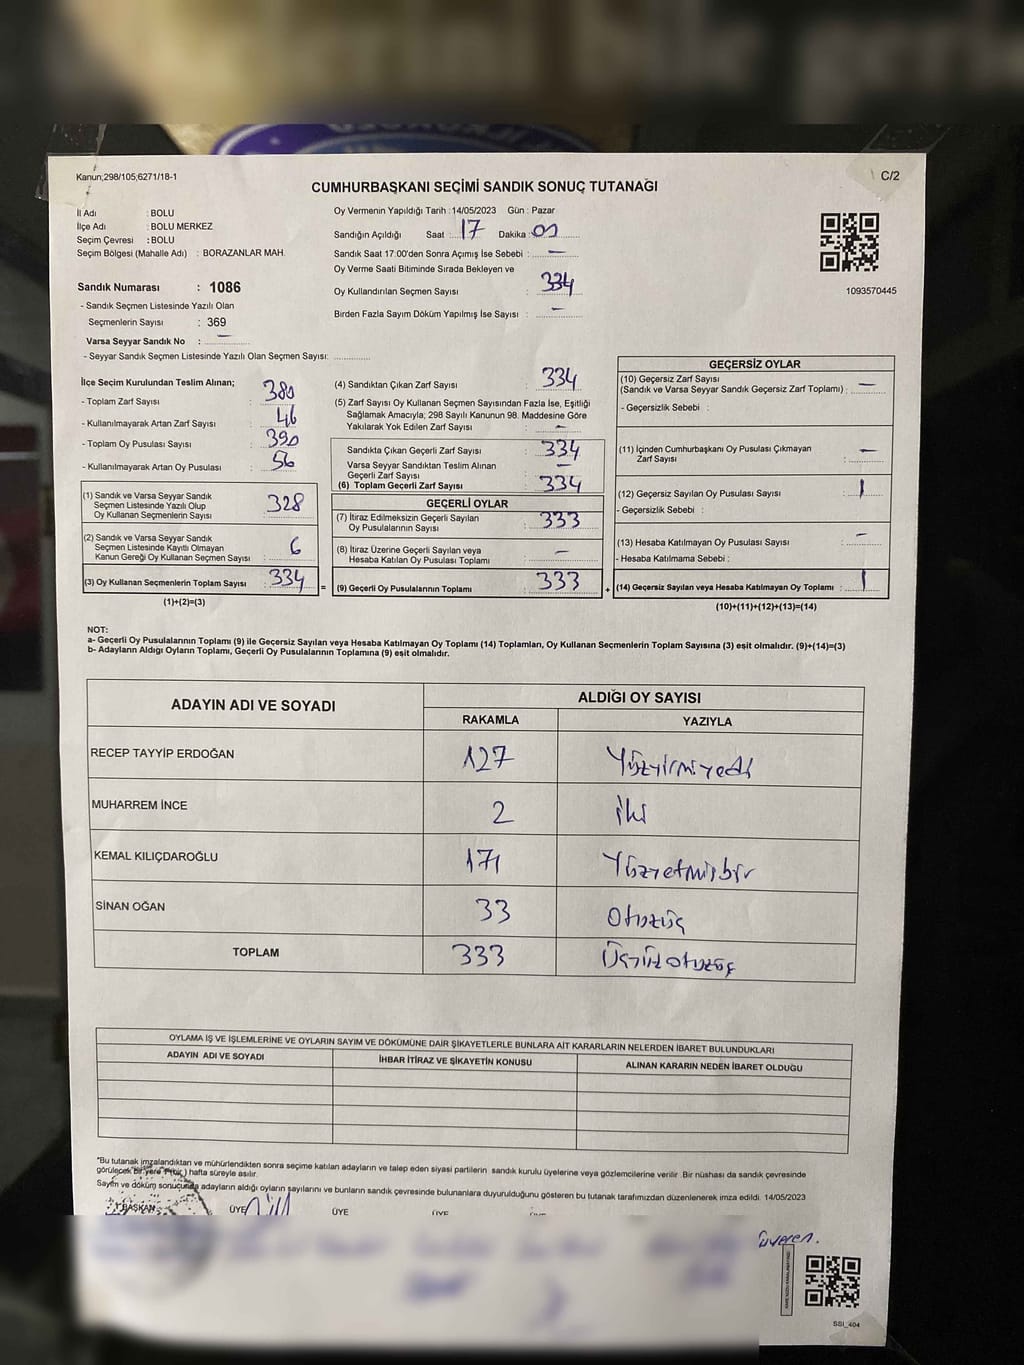 Kanun;298/105;6271/18-1
C/2
CUMHURBAŞKANI SEÇİMİ SANDIK SONUÇ TUTANAĞI
İl Adı : BOLU
İlçe Adı : BOLU MERKEZ
Seçim Çevresi : BOLU
Seçim Bölgesi (Mahalle Adı) : BORAZANLAR MAH.
Sandık Numarası : 1086
- Sandık Seçmen Listesinde Yazılı Olan
Seçmenlerin Sayısı : 369
Varsa Seyyar Sandık No : —
- Seyyar Sandık Seçmen Listesinde Yazılı Olan Seçmen Sayısı: ............
Oy Vermenin Yapıldığı Tarih :14/05/2023 Gün : Pazar
Sandığın Açıldığı Saat : 17 Dakika :
Sandık Saat 17:00'den Sonra Açımış İse Sebebi : —
Oy Verme Saati Bitiminde Sırada Bekleyen ve
Oy Kullandırılan Seçmen Sayısı : 334
Birden Fazla Sayım Döküm Yapılmış İse Sayısı : —
1093570445
İlçe Seçim Kurulundan Teslim Alınan;
- Toplam Zarf Sayısı : 380
- Kullanılmayarak Artan Zarf Sayısı : 46
- Toplam Oy Pusulası Sayısı : 390
- Kullanılmayarak Artan Oy Pusulası : 56
(1) Sandık ve Varsa Seyyar Sandık
Seçmen Listesinde Yazılı Olup
Oy Kullanan Seçmenlerin Sayısı : 328
(2) Sandık ve Varsa Seyyar Sandık
Seçmen Listesinde Kayıtlı Olmayan
Kanun Gereği Oy Kullanan Seçmen Sayısı : 6
(3) Oy Kullanan Seçmenlerin Toplam Sayısı : 334 =
(1)+(2)=(3)
(4) Sandıktan Çıkan Zarf Sayısı : 334
(5) Zarf Sayısı Oy Kullanan Seçmen Sayısından Fazla İse, Eşitliği
Sağlamak Amacıyla; 298 Sayılı Kanunun 98. Maddesine Göre
Yakılarak Yok Edilen Zarf Sayısı : —
Sandıkta Çıkan Geçerli Zarf Sayısı : 334
Varsa Seyyar Sandıktan Teslim Alınan
Geçerli Zarf Sayısı : —
(6) Toplam Geçerli Zarf Sayısı : 334
GEÇERLİ OYLAR
(7) İtiraz Edilmeksizin Geçerli Sayılan
Oy Pusulalarının Sayısı : 333
(8) İtiraz Üzerine Geçerli Sayılan veya
Hesaba Katılan Oy Pusulası Toplamı : —
(9) Geçerli Oy Pusulalarının Toplamı : 333 +
GEÇERSİZ OYLAR
(10) Geçersiz Zarf Sayısı
(Sandık ve Varsa Seyyar Sandık Geçersiz Zarf Toplamı) : —
- Geçersizlik Sebebi :
(11) İçinden Cumhurbaşkanı Oy Pusulası Çıkmayan
Zarf Sayısı : —
(12) Geçersiz Sayılan Oy Pusulası Sayısı : 1
- Geçersizlik Sebebi :
(13) Hesaba Katılmayan Oy Pusulası Sayısı : —
- Hesaba Katılmama Sebebi :
(14) Geçersiz Sayılan veya Hesaba Katılmayan Oy Toplamı : 1
(10)+(11)+(12)+(13)=(14)
NOT:
a- Geçerli Oy Pusulalarının Toplamı (9) ile Geçersiz Sayılan veya Hesaba Katılmayan Oy Toplamı (14) Toplamları, Oy Kullanan Seçmenlerin Toplam Sayısına (3) eşit olmalıdır. (9)+(14)=(3)
b- Adayların Aldığı Oyların Toplamı, Geçerli Oy Pusulalarının Toplamına (9) eşit olmalıdır.
ADAYIN ADI VE SOYADI ALDIĞI OY SAYISI
RAKAMLA YAZIYLA
RECEP TAYYİP ERDOĞAN 127 Yüzyirmiyedi
MUHARREM İNCE 2 iki
KEMAL KILIÇDAROĞLU 171 Yüzyetmişbir
SİNAN OĞAN 33 Otuzüç
TOPLAM 333 Üçyüzotuzüç
OYLAMA İŞ VE İŞLEMLERİNE VE OYLARIN SAYIM VE DÖKÜMÜNE DAİR ŞİKAYETLERLE BUNLARA AİT KARARLARIN NELERDEN İBARET BULUNDUKLARI
ADAYIN ADI VE SOYADI İHBAR İTİRAZ VE ŞİKAYETİN KONUSU ALINAN KARARIN NEDEN İBARET OLDUĞU
*Bu tutanak imzalandıktan ve mühürlendikten sonra seçime katılan adayların ve talep eden siyasi partilerin sandık kurulu üyelerine veya gözlemcilerine verilir. Bir nüshası da sandık çevresinde
görülecek bir yere 1 (bir) hafta süreyle asılır.
Sayım ve döküm sonucunda adayların aldığı oyların sayılarını ve bunların sandık çevresinde bulunanlara duyurulduğunu gösteren bu tutanak tarafımızdan düzenlenerek imza edildi. 14/05/2023
BAŞKAN ÜYE ÜYE ÜYE
SSI_404